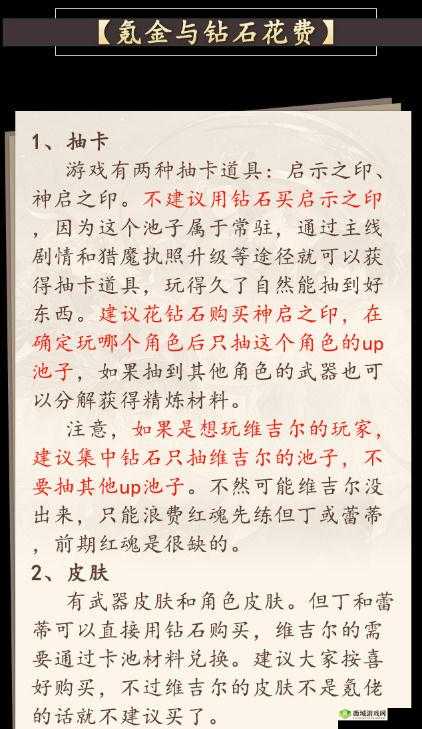 【氪金与钻石花费】
1、抽卡
游戏有两种抽卡道具：启示之印、
神启之印。不建议用钻石买启示之印
，因为这个池子属于常驻，通过主线
剧情和猎魔执照升级等途径就可以获
得抽卡道具，玩得久了自然能抽到好
东西。建议花钻石购买神启之印，在
确定玩哪个角色后只抽这个角色的up
池子，如果抽到其他角色的武器也可
以分解获得精炼材料。
注意，如果是想玩维吉尔的玩家，
建议集中钻石只抽维吉尔的池子，不
要抽其他up池子。不然可能维吉尔没
出来，只能浪费红魂先练但丁或蕾蒂
，前期红魂是很缺的。
2、皮肤
有武器皮肤和角色皮肤。但丁和蕾
蒂可以直接用钻石购买，维吉尔的需
要通过卡池材料兑换。建议大家按喜
好购买，不过维吉尔的皮肤不是氪佬
的话就不建议买了。